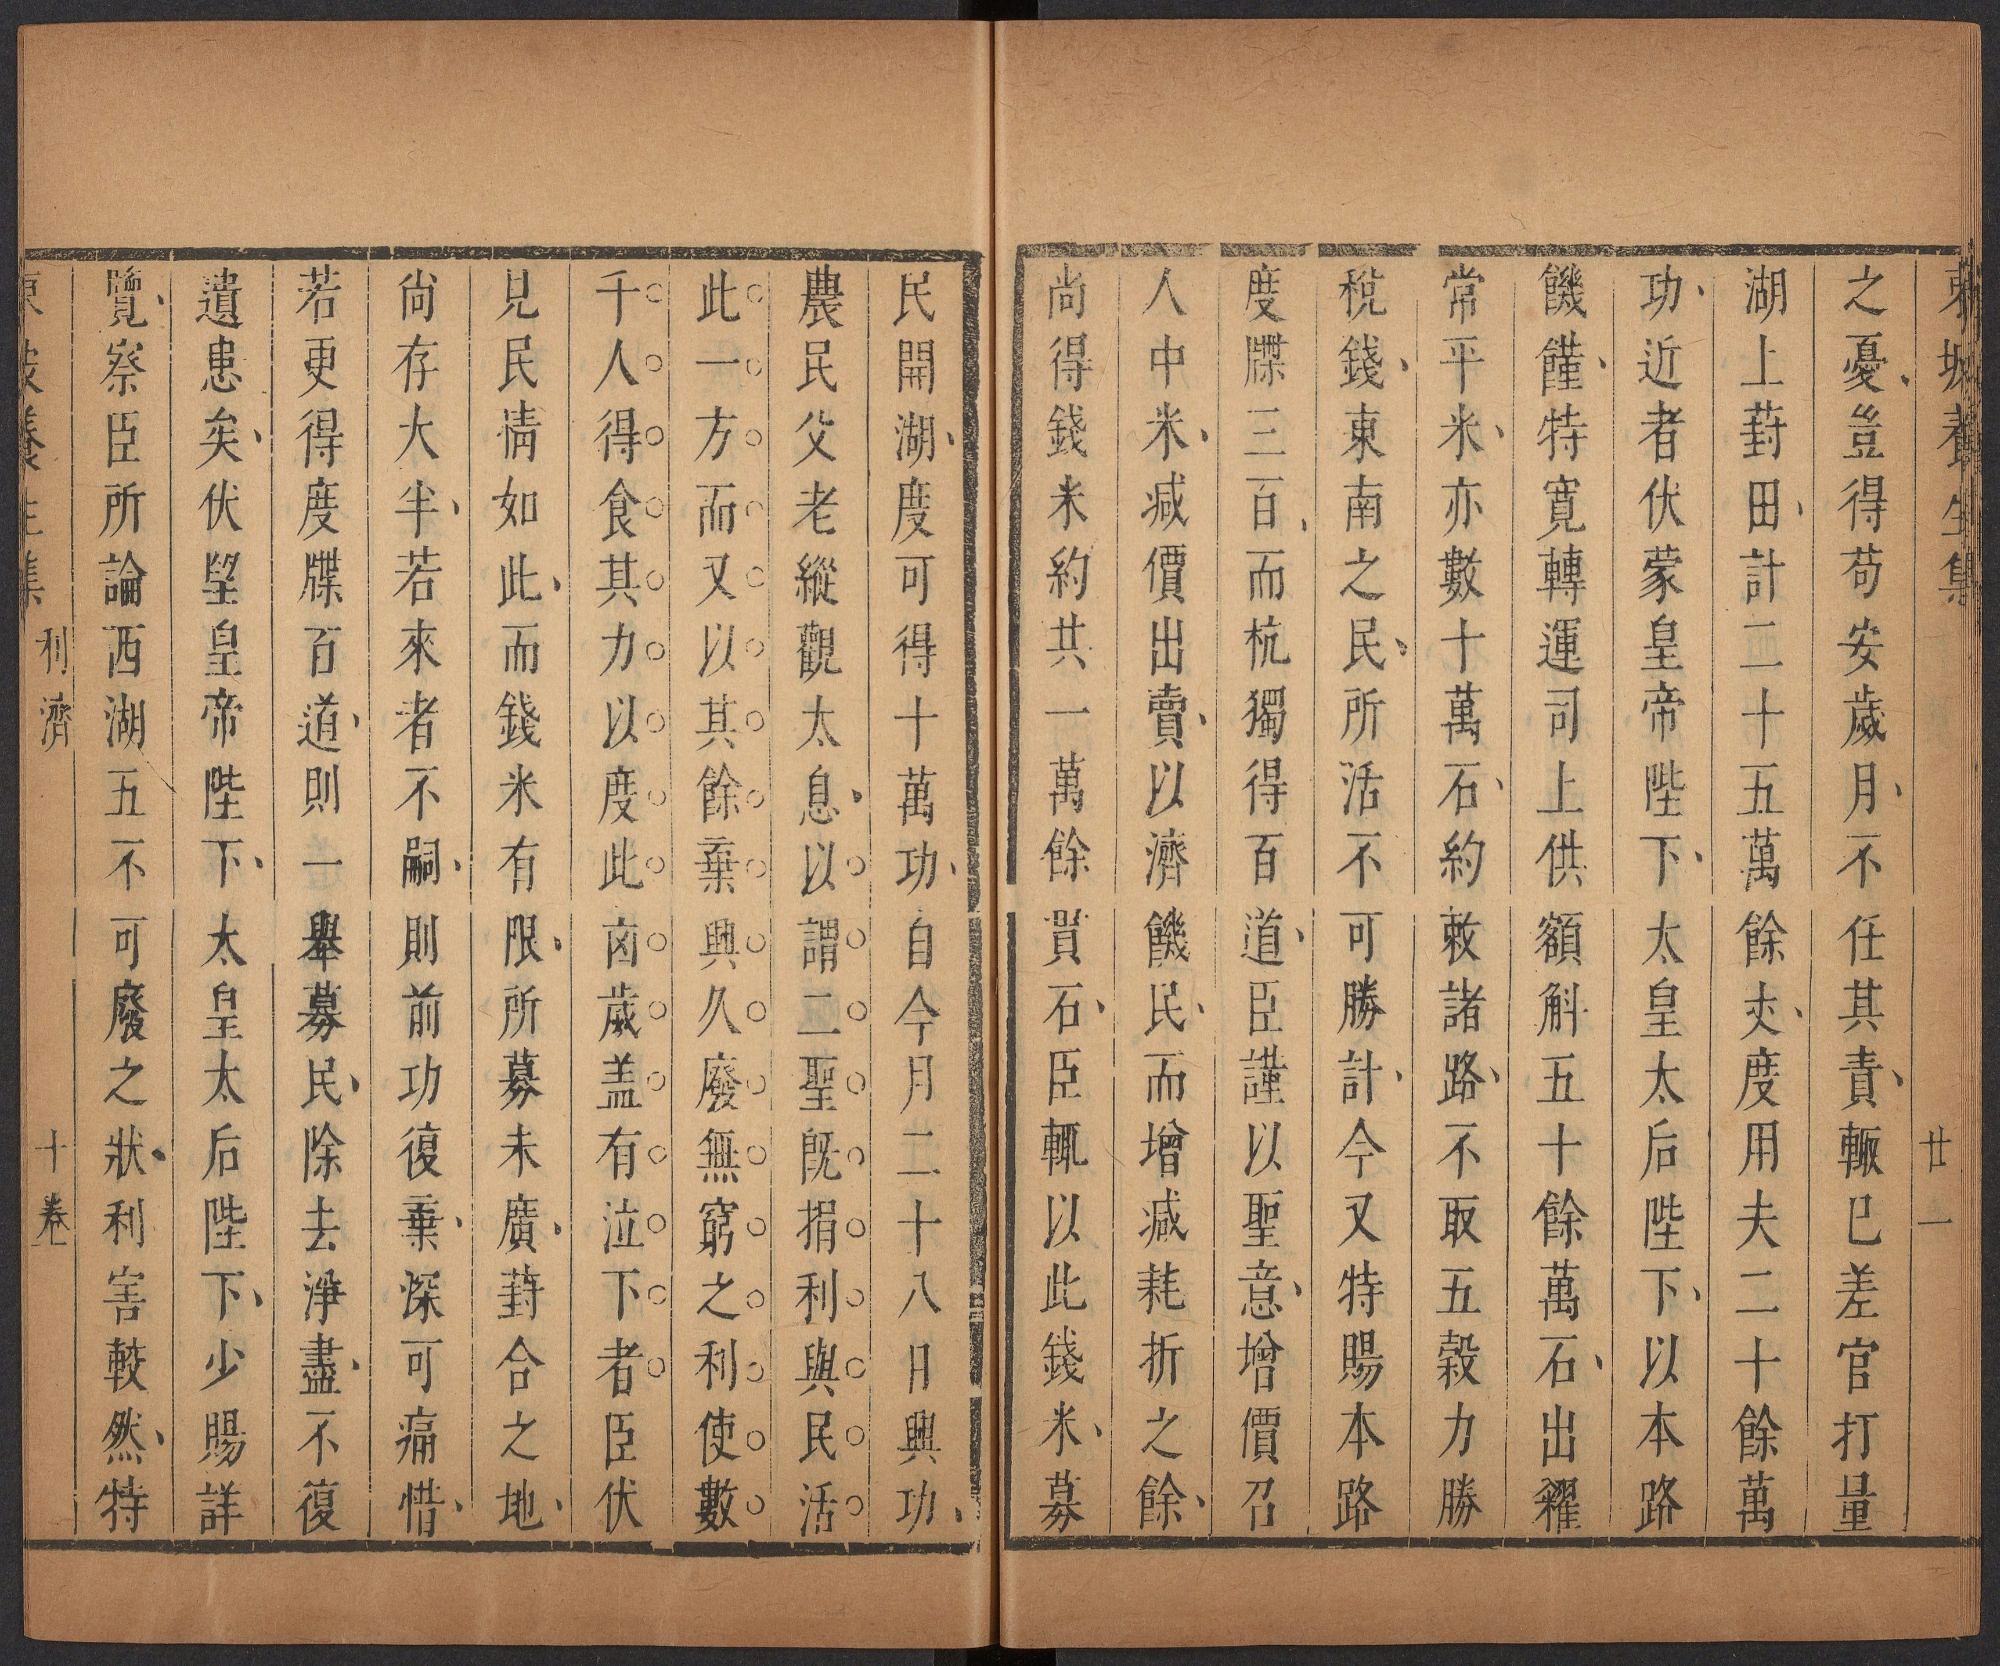 東坡養生集 廿一
之憂豈得苟安歲月不任其責輙已差官打量
湖上葑田計二十五萬餘丈度用夫二十餘萬
功近者伏蒙皇帝陛下太皇太后陛下以本路
饑饉特寬轉運司上供額斛五十餘萬石出糴
常平米亦數十萬石約敕諸路不取五穀力勝
稅錢東南之民所活不可勝計今又特賜本路
度牒三百而杭獨得百道臣謹以聖意增價召
人中米减價出賣以濟饑民而增减耗折之餘
尚得錢米約共一萬餘貫石臣輒以此錢米募
民開湖度可得十萬功自今月二十八日興功
農民父老縱觀太息以謂二聖旣捐利與民活
此一方而又以其餘棄興久廢無窮之利使數
千人得食其力以度此凶歲盖有泣下者臣伏
見民情如此而錢米有限所募未廣葑合之地
尙存大半若來者不嗣則前功復棄深可痛惜
若更得度牒百道則一舉募民除去淨盡不復
遺患矣伏望皇帝陛下太皇太后陛下少賜詳
覽察臣所論西湖五不可廢之狀利害較然特
東坡養生集 利濟 十卷